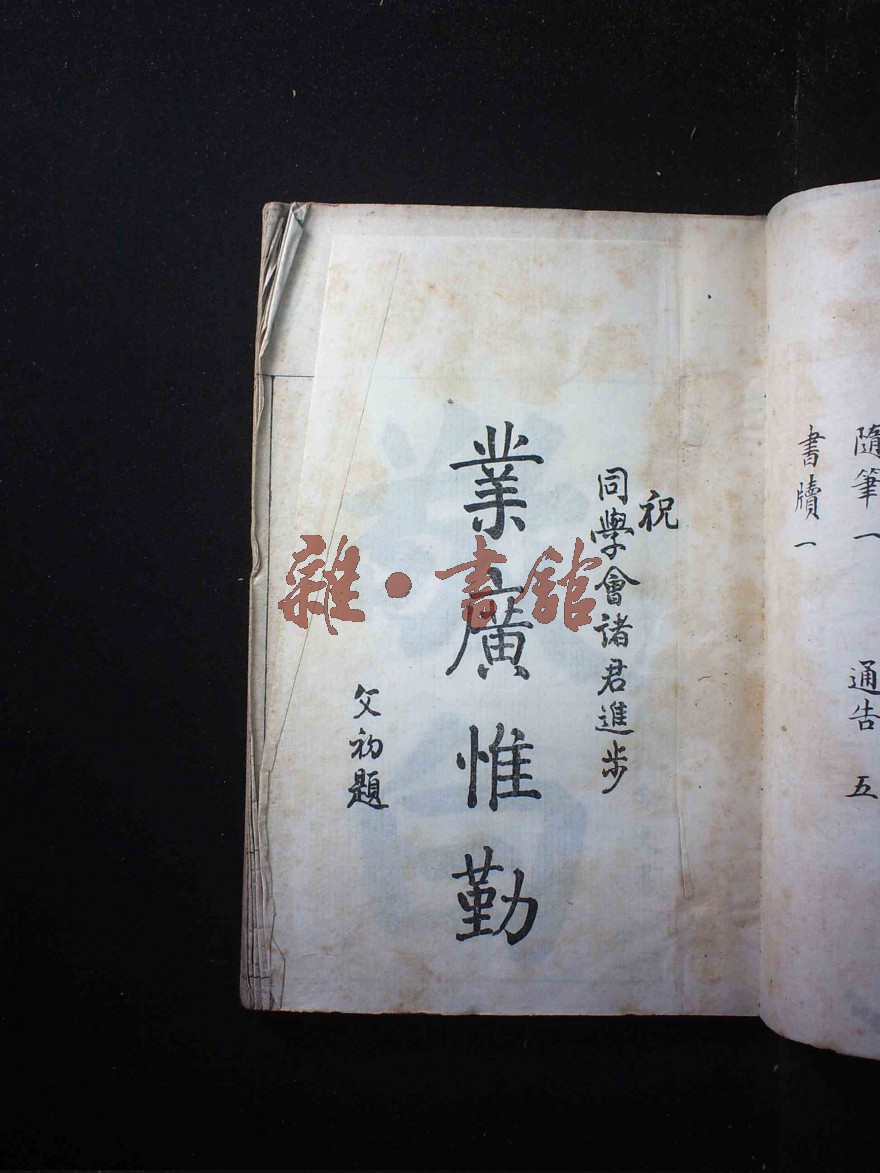 隨筆一 通告 五
書牘一
祝
同學會諸君進步
業廣惟勤
文初題
雜·書館